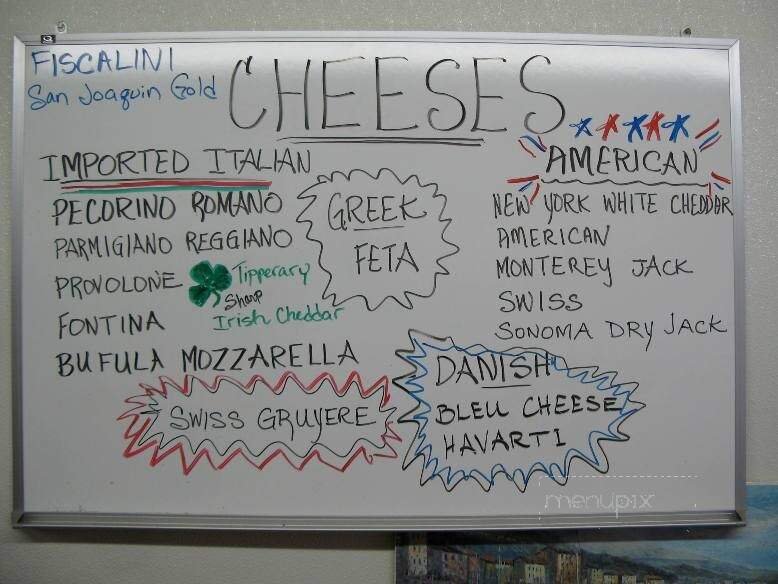 FISCALINI
San Joaquin Gold
CHEESES
IMPORTED ITALIAN
PECORINO ROMANO
PARMIGIANO REGGIANO
PROVOLONE
FONTINA
BUFULA MOZZARELLA
Tipperary
Sharp
Irish Cheddar
GREEK
FETA
AMERICAN
NEW YORK WHITE CHEDDAR
AMERICAN
MONTEREY JACK
SWISS
SONOMA DRY JACK
SWISS GRUYERE
DANISH
BLEU CHEESE
HAVARTI
menupix